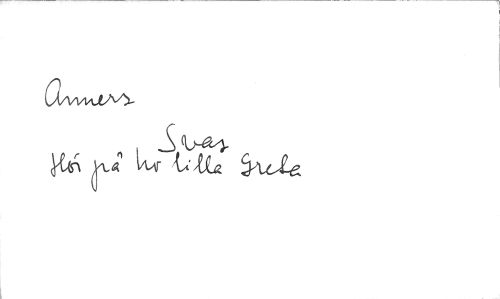 Anners
Svar
Hör på ho lilla Greta